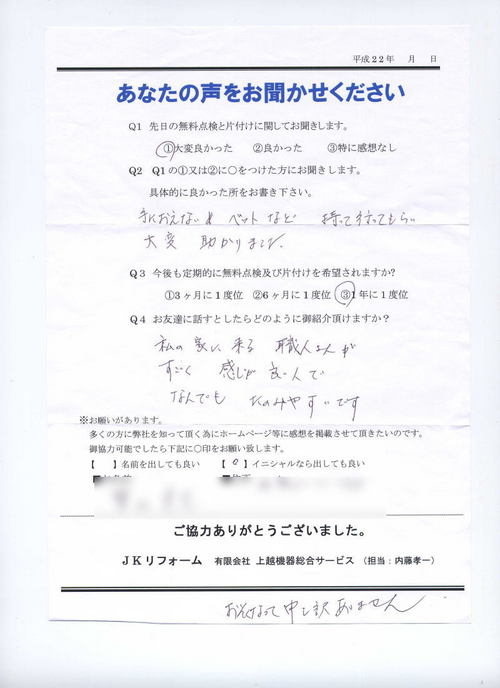 平成22年　月　日
あなたの声をお聞かせください
Q1 先日の無料点検と片付けに関してお聞きします。
①大変良かった　②良かった　③特に感想なし
Q2 Q1の①又は②に○をつけた方にお聞きします。
具体的に良かった所をお書き下さい。
手におえない ベットなど 持って行ってもらい
大変 助かりました。
Q3 今後も定期的に無料点検及び片付けを希望されますか?
①3ヶ月に1度位 ②6ヶ月に1度位 ③1年に1度位
Q4 お友達に話すとしたらどのように御紹介頂けますか?
私の家に来る 職人さんが
すごく 感じが良い人で
なんでも たのみやすいです
※お願いがあります。
多くの方に弊社を知って頂く為にホームページ等に感想を掲載させて頂きたいのです。
御協力可能でしたら下記に○印をお願い致します。
【　】名前を出しても良い　【○】イニシャルなら出しても良い
ご協力ありがとうございました。
JKリフォーム　有限会社 上越機器総合サービス（担当：内藤孝一）
おそくなって申し訳ありません